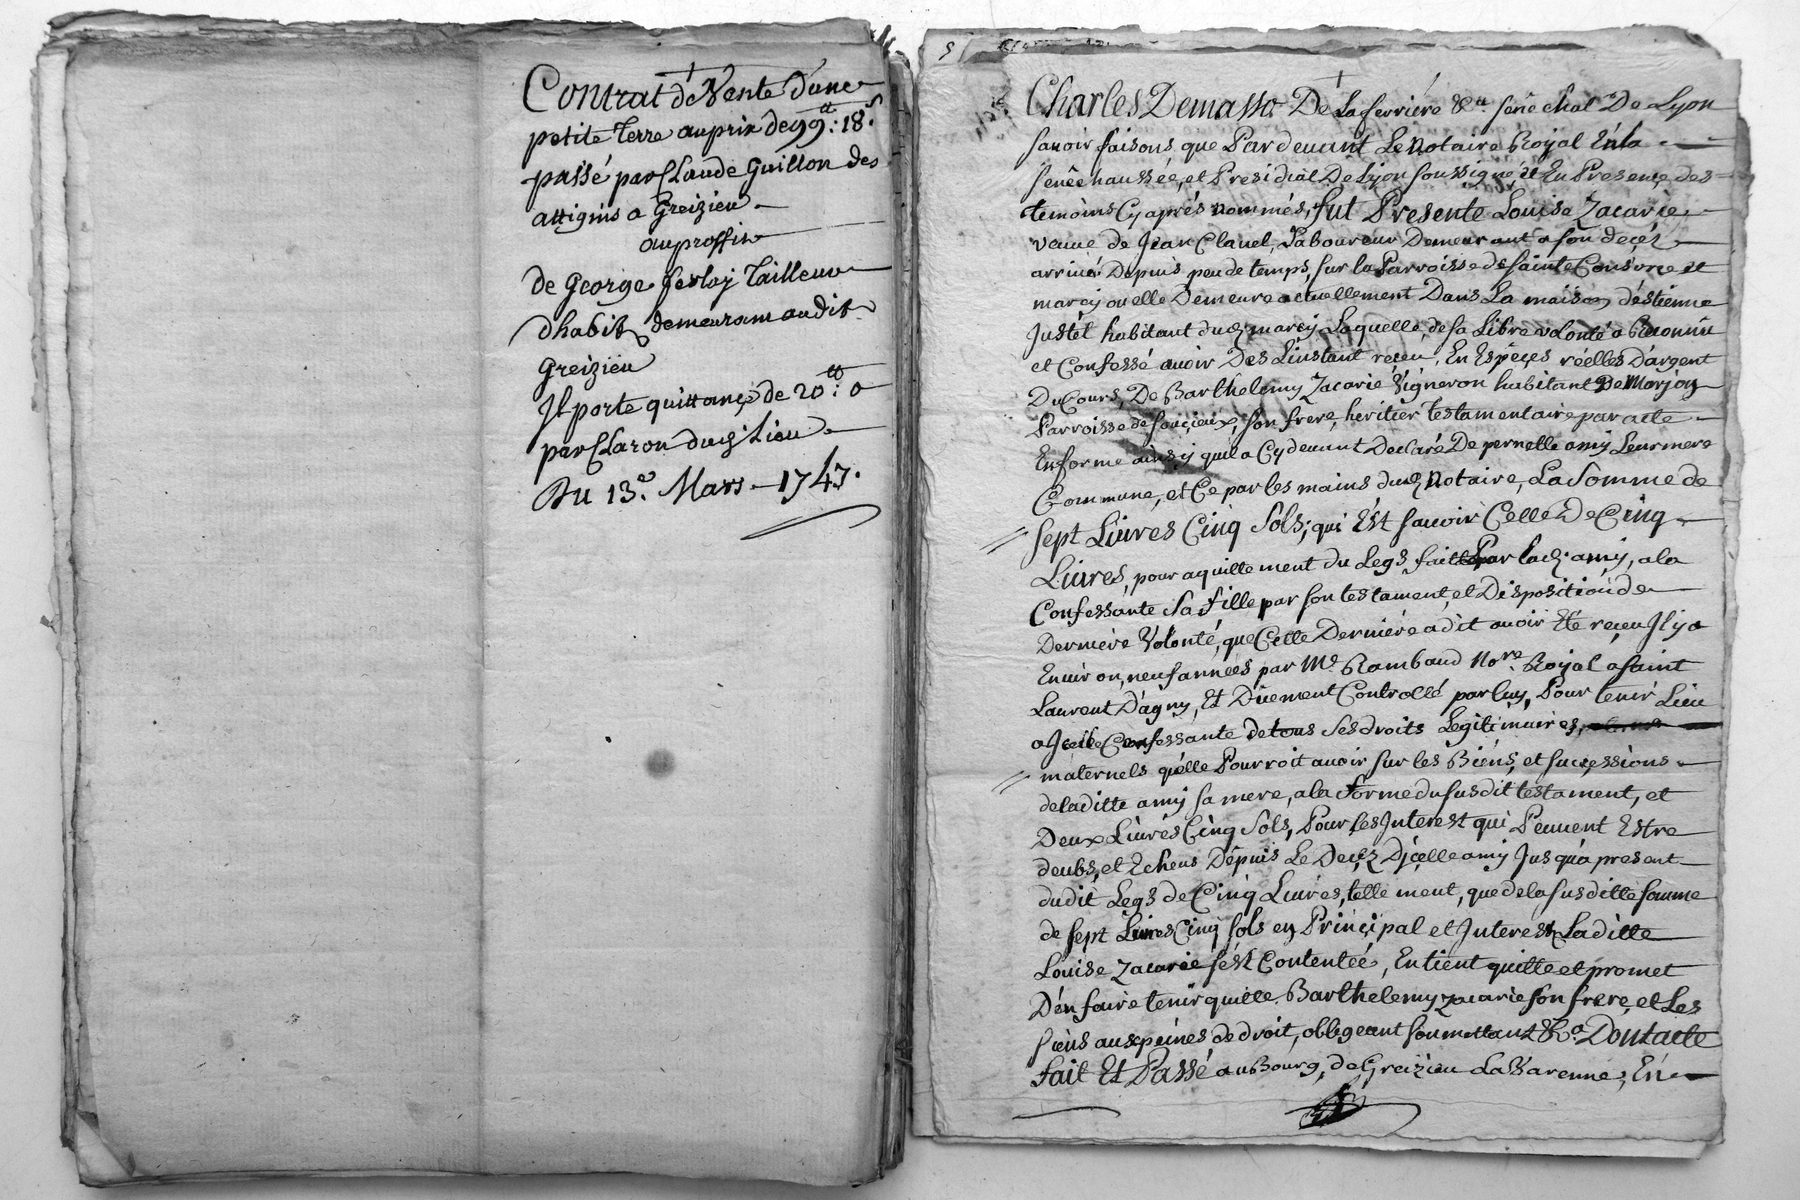 Contrat de Vente Dune
petite Terre au prix de 99ᵗᵗ: 18.ˢ
passé par Claude Guillon des
attignis a Greizieu
au proffit
de George ferlaj Tailleur
dhabit demeurant audit
Greizieu
Jl porte quittançe de 20ᵗᵗ: 0
par Claron dudᵗ Lieu
Du 13.ᵉ Mars 1747.
5
Charles Demasso De Laferriére &ᵃ. sénéchal De Lyon
sauoir faisons que Pardeuant Le Notaire Royal En la
senéchaussée, et Presidial De Lyon soussigné, et En Presençe des
temoins Cy aprés nommés, fut Presente Louise Zacarie
veuue de Jean Clauel, Laboureur Demeurant a son deçéz
arriué Depuis peu de temps, sur la Parroisse de sainte Consorce et
marcy ou elle Demeure actuellement Dans La maison d'éstienne
Justet habitant dudᵗ marcy Laquelle de sa Libre volonté a Reconnu
et Confessé auoir Des L'instant reçeu, En Espéçes réelles D'argent
Du Cours, De Barthelemy Zacarie Vigneron habitant De Marjon
Parroisse de souçieux, son frere, heritier Testamentaire par acte
En forme ainsy quil a Cydeuant Declaré De pernelle amy Leur mere
Commune, et Ce par les mains dudᵗ Notaire, La Somme de
sept Liures Cinq Sols; qui Est sauoir Celle De Cinq
Liures, pour aquittement du Legs fait Par ladᵗ. amy, a la
Confessante Sa fille par son testament, et Disposition de
Derniére Volonté, que Cette Derniére a dit auoir Eté reçeu Jl y a
Enuiron, neuf années par Mᵉ Rambaud Noʳᵉ. Royal a saint
Laurent D'agny, Et Duement Controllé par luy, Pour tenir Lieu
a Jcelle Confessante de tous Ses droits Legitimaires,
maternels quélle Pourroit auoir sur les Biéns, et suçcessions
de laditte amy sa mere, a la Forme du susdit testament, et
Deux Liures Cinq Sols, Pour les Jnterest qui Peuuent Estre
deubs, et Echeus Dépuis Le Deçéz D'jçelle amy Jusqu'a present
dudit Legs de Cinq Liures, tellement, que de la susditte somme
de sept Liures Cinq sols en Prinçipal et Jnterest Laditte
Louise Zacarie s'ést Contentéé, En tient quitte et promet
D'én faire tenir quitte Barthelemy Zacarie son frere, et Les
siens aux peines de droit, obligeant soumettant &ᵃ. Dont acte
fait Et Passé au Bourg, de Greizieu La Varenne, En